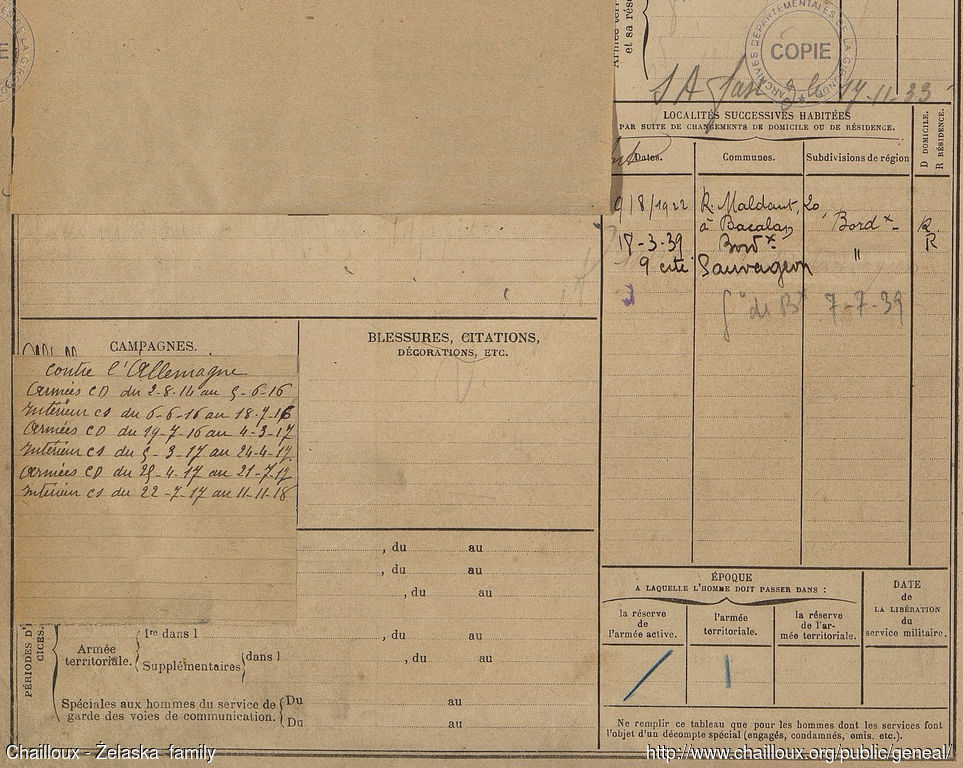 ARCHIVES DÉPARTEMENTALES DE LA GIRONDE
COPIE
et sa rés
17-11-33
LOCALITÉS SUCCESSIVES HABITÉES
PAR SUITE DE CHANGEMENTS DE DOMICILE OU DE RÉSIDENCE.
D DOMICILE.
R RÉSIDENCE.
Dates.
Communes.
Subdivisions de région
9/8/1922 R. Maldant, 20,
à Bacalan Bordx- R
18-3-39 Bordx- R
9 cité Sauvageon "
de Bx 7-7-39
CAMPAGNES.
contre l'Allemagne
Armées CD du 2-8-14 au 5-6-16
Intérieur CS du 6-6-16 au 18-7-16
Armées CD du 19-7-16 au 4-3-17
Intérieur CS du 5-3-17 au 24-4-17.
Armées CD du 25-4-17 au 21-7-17
Intérieur CS du 22-7-17 au 11-11-18
BLESSURES, CITATIONS,
DÉCORATIONS, ETC.
, du au
, du au
, du au
PÉRIODES D'
CICES.
Armée
territoriale.
1re dans l , du au
Supplémentaires dans l , du au
Spéciales aux hommes du service de
garde des voies de communication.
Du au
Du au
ÉPOQUE
A LAQUELLE L'HOMME DOIT PASSER DANS :
la réserve
de
l'armée active.
l'armée
territoriale.
la réserve
de l'ar-
mée territoriale.
DATE
de
LA LIBÉRATION
du
service militaire.
Ne remplir ce tableau que pour les hommes dont les services font
l'objet d'un décompte spécial (engagés, condamnés, omis, etc.).
Chailloux - Želaska family
http://www.chailloux.org/public/geneal/